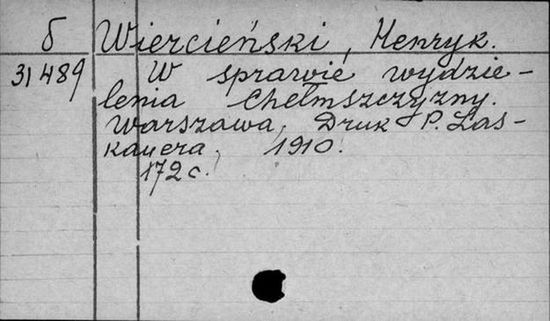 б Wiercieński, Henryk.
31489 W sprawie wydzie-
lenia Chełmszczyzny.
Warszawa, Druk P. Las-
kauera, 1910.
172 c.